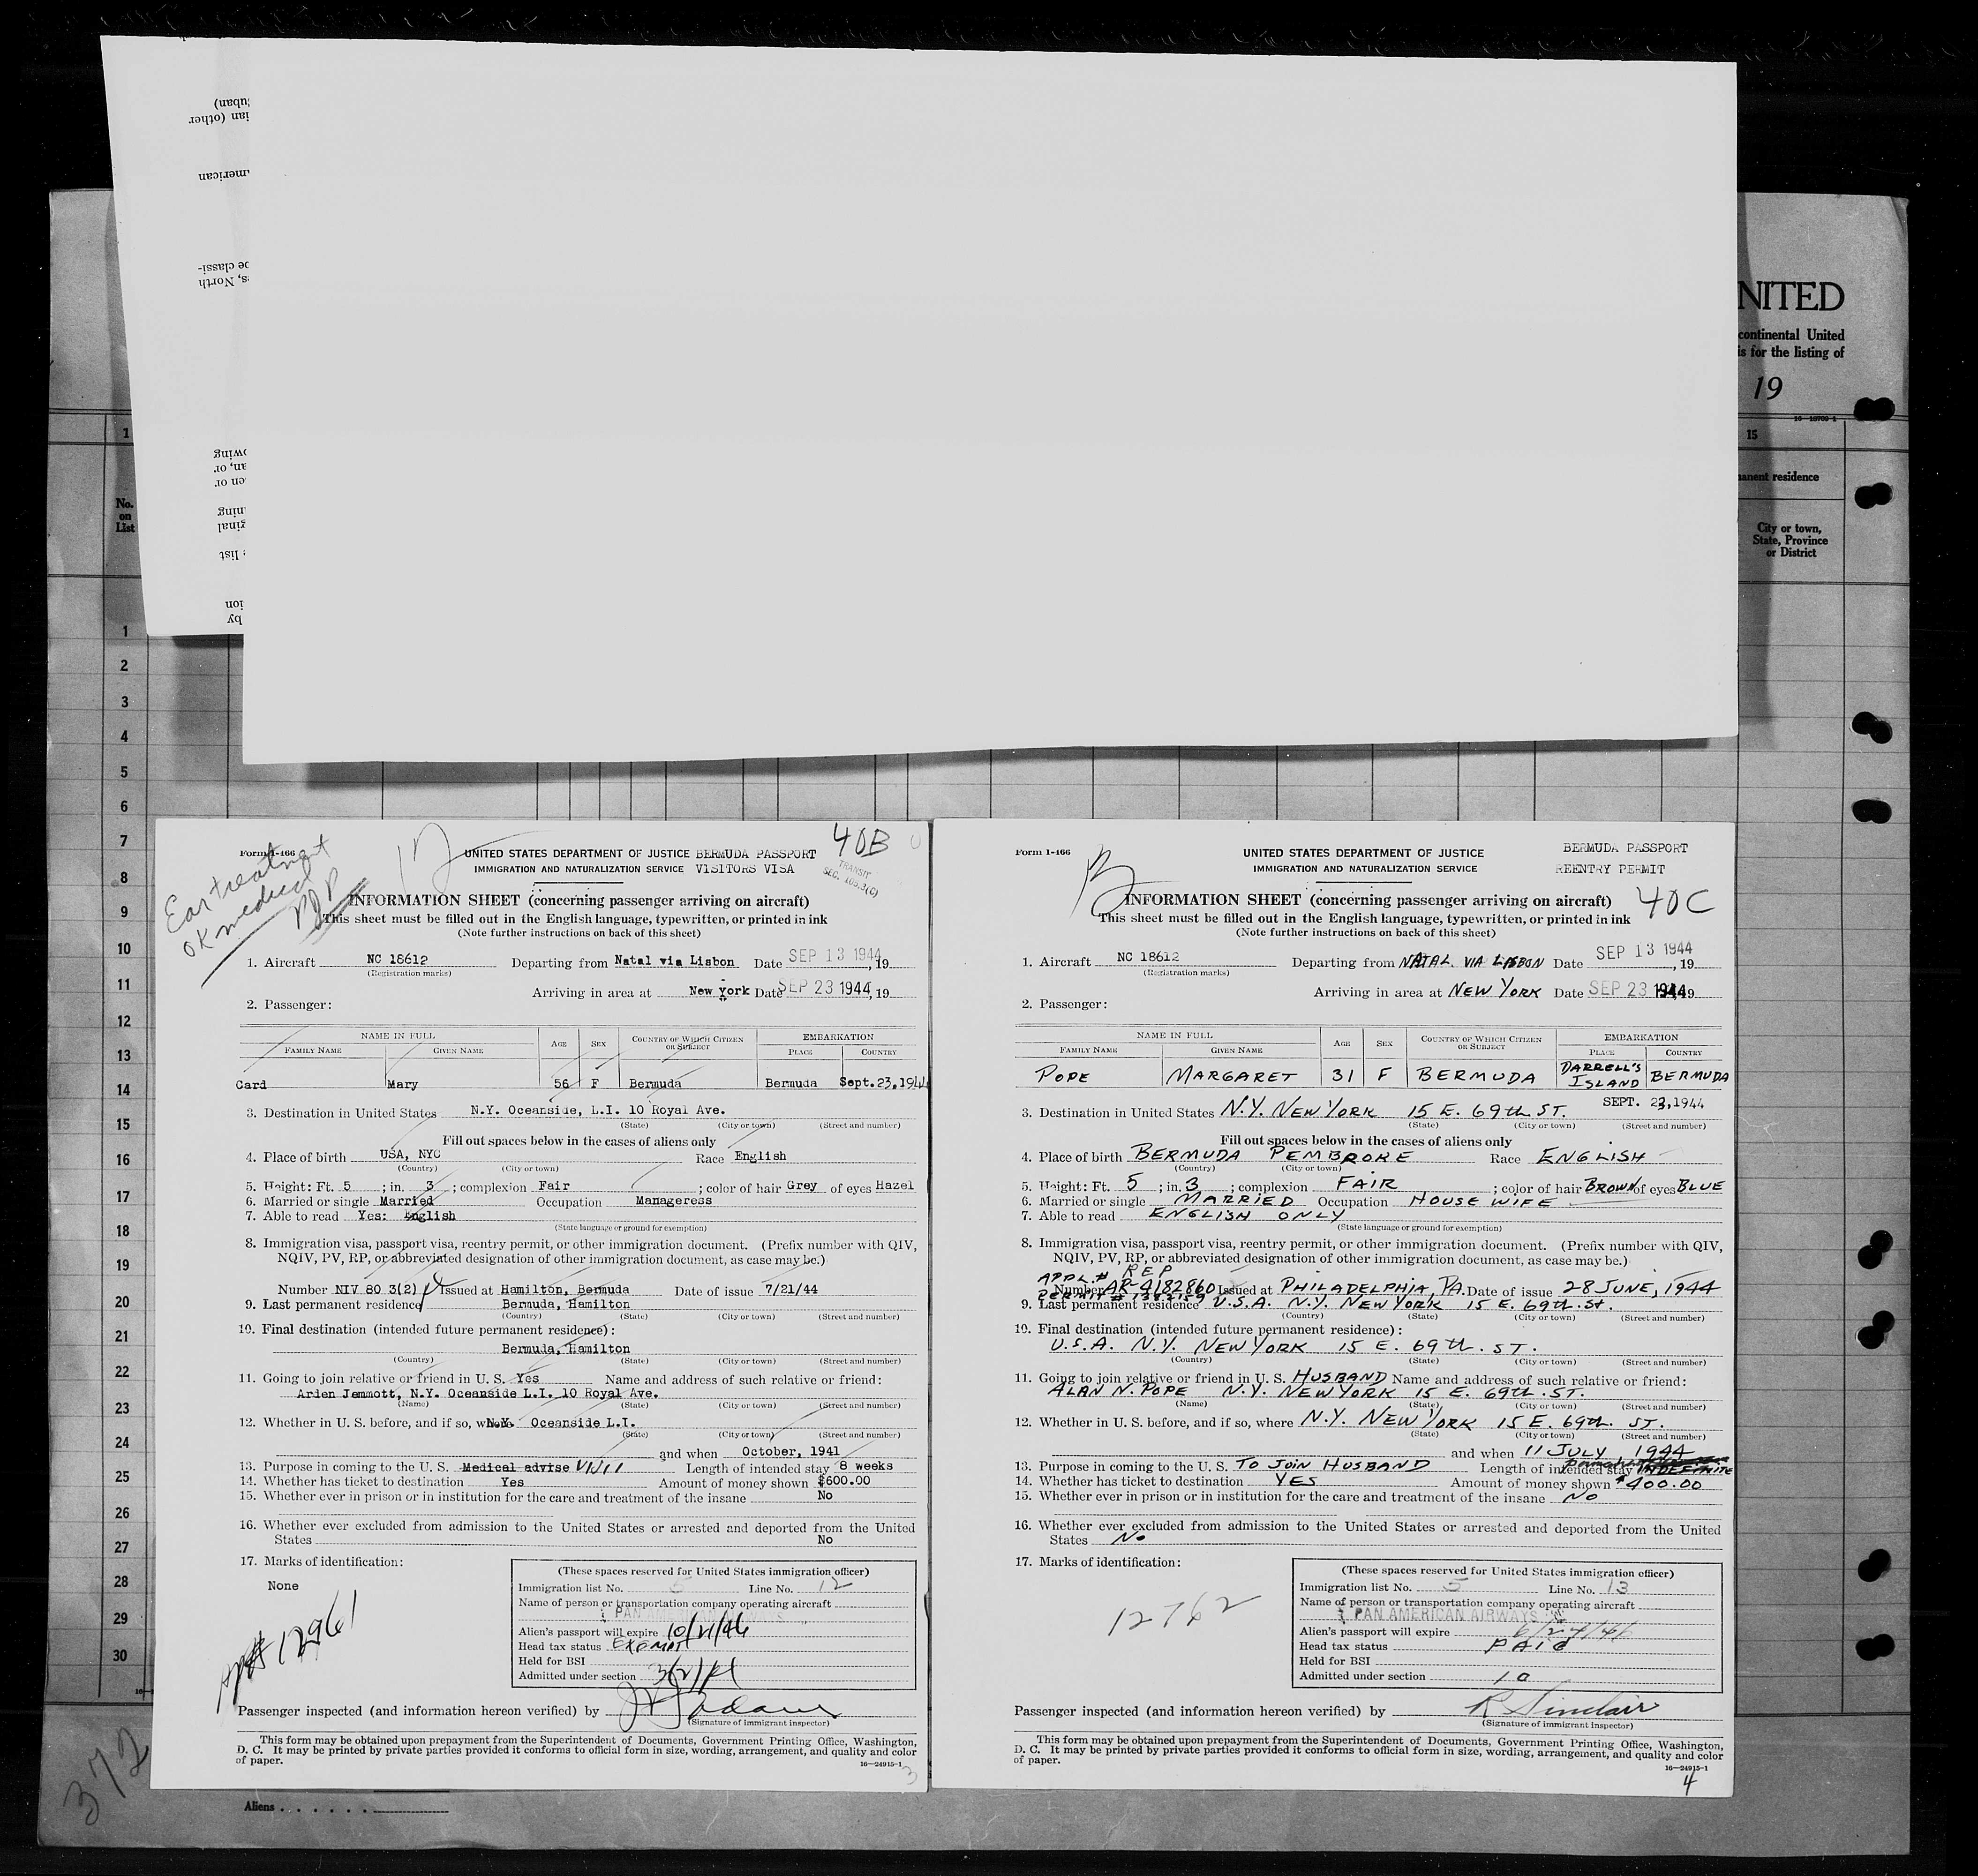 uban)
ian (other
merican
be classi-
s, North
owing
an, or
en or
ning
ginal
list
ion
by
NITED
continental United
is for the listing of
19
16—18709-1
1
15
manent residence
No.
on
List
City or town,
State, Province
or District
1
2
3
4
5
6
7
8
9
10
11
12
13
14
15
16
17
18
19
20
21
22
23
24
25
26
27
28
29
30
372
Aliens . . . . . .
Ear treatment
OK medical
PJP
40B
Form I-466
UNITED STATES DEPARTMENT OF JUSTICE BERMUDA PASSPORT
IMMIGRATION AND NATURALIZATION SERVICE VISITORS VISA
TRANSIT
SEC. 165.3(C)
INFORMATION SHEET (concerning passenger arriving on aircraft)
This sheet must be filled out in the English language, typewritten, or printed in ink
(Note further instructions on back of this sheet)
1. Aircraft NC 18612 Departing from Natal via Lisbon Date SEP 13 1944, 19
(Registration marks)
Arriving in area at New York Date SEP 23 1944, 19
2. Passenger:
NAME IN FULL AGE SEX COUNTRY OF WHICH CITIZEN OR SUBJECT EMBARKATION
FAMILY NAME GIVEN NAME PLACE COUNTRY
Card Mary 56 F Bermuda Bermuda Sept.23,1944
3. Destination in United States N.Y. Oceanside, L.I. 10 Royal Ave.
(State) (City or town) (Street and number)
Fill out spaces below in the cases of aliens only
4. Place of birth USA, NYC Race English
(Country) (City or town)
5. Height: Ft. 5 ; in. 3 ; complexion Fair ; color of hair Grey of eyes Hazel
6. Married or single Married Occupation Manageress
7. Able to read Yes: English
(State language or ground for exemption)
8. Immigration visa, passport visa, reentry permit, or other immigration document. (Prefix number with QIV,
NQIV, PV, RP, or abbreviated designation of other immigration document, as case may be.)
Number NIV 80 3(2) Issued at Hamilton, Bermuda Date of issue 7/21/44
9. Last permanent residence Bermuda, Hamilton
(Country) (State) (City or town) (Street and number)
10. Final destination (intended future permanent residence):
Bermuda, Hamilton
(Country) (State) (City or town) (Street and number)
11. Going to join relative or friend in U. S. Yes Name and address of such relative or friend:
Arden Jemmott, N.Y. Oceanside L.I. 10 Royal Ave.
(Name) (State) (City or town) (Street and number)
12. Whether in U. S. before, and if so, where N.Y. Oceanside L.I.
(State) (City or town) (Street and number)
and when October, 1941
13. Purpose in coming to the U. S. Medical advise Length of intended stay 8 weeks
14. Whether has ticket to destination Yes Amount of money shown $600.00
15. Whether ever in prison or in institution for the care and treatment of the insane No
16. Whether ever excluded from admission to the United States or arrested and deported from the United
States No
17. Marks of identification:
None
(These spaces reserved for United States immigration officer)
Immigration list No. 5 Line No. 12
Name of person or transportation company operating aircraft
PAN AMERICAN AIRWAYS
Alien's passport will expire 10/21/46
Head tax status EXEMPT
Held for BSI
Admitted under section 3(2)
Passenger inspected (and information hereon verified) by
(Signature of immigrant inspector)
This form may be obtained upon prepayment from the Superintendent of Documents, Government Printing Office, Washington,
D. C. It may be printed by private parties provided it conforms to official form in size, wording, arrangement, and quality and color
of paper.
16—24915-1
3
Form I-466
UNITED STATES DEPARTMENT OF JUSTICE
IMMIGRATION AND NATURALIZATION SERVICE
BERMUDA PASSPORT
REENTRY PERMIT
40C
INFORMATION SHEET (concerning passenger arriving on aircraft)
This sheet must be filled out in the English language, typewritten, or printed in ink
(Note further instructions on back of this sheet)
1. Aircraft NC 18612 Departing from NATAL VIA LISBON Date SEP 13 1944, 19
(Registration marks)
Arriving in area at NEW YORK Date SEP 23 1944, 19
2. Passenger:
NAME IN FULL AGE SEX COUNTRY OF WHICH CITIZEN OR SUBJECT EMBARKATION
FAMILY NAME GIVEN NAME PLACE COUNTRY
POPE MARGARET 31 F BERMUDA DARRELL'S ISLAND BERMUDA
SEPT. 23,1944
3. Destination in United States N.Y. NEW YORK 15 E. 69th ST.
(State) (City or town) (Street and number)
Fill out spaces below in the cases of aliens only
4. Place of birth BERMUDA PEMBROKE Race ENGLISH
(Country) (City or town)
5. Height: Ft. 5 ; in. 3 ; complexion FAIR ; color of hair BROWN of eyes BLUE
6. Married or single MARRIED Occupation HOUSE WIFE
7. Able to read ENGLISH ONLY
(State language or ground for exemption)
8. Immigration visa, passport visa, reentry permit, or other immigration document. (Prefix number with QIV,
NQIV, PV, RP, or abbreviated designation of other immigration document, as case may be.)
APPL. # REP
Number AR-4182860 Issued at PHILADELPHIA, PA. Date of issue 28 JUNE, 1944
PERMIT #
9. Last permanent residence U.S.A. N.Y. NEW YORK 15 E. 69th. St.
(Country) (State) (City or town) (Street and number)
10. Final destination (intended future permanent residence):
U.S.A. N.Y. NEW YORK 15 E. 69th. ST.
(Country) (State) (City or town) (Street and number)
11. Going to join relative or friend in U. S. HUSBAND Name and address of such relative or friend:
ALAN N. POPE N.Y. NEW YORK 15 E. 69th. ST.
(Name) (State) (City or town) (Street and number)
12. Whether in U. S. before, and if so, where N.Y. NEW YORK 15 E. 69th. ST.
(State) (City or town) (Street and number)
and when 11 JULY, 1944
13. Purpose in coming to the U. S. TO JOIN HUSBAND Length of intended stay INDEFINITE
14. Whether has ticket to destination YES Amount of money shown $400.00
15. Whether ever in prison or in institution for the care and treatment of the insane NO
16. Whether ever excluded from admission to the United States or arrested and deported from the United
States NO
17. Marks of identification:
12762
(These spaces reserved for United States immigration officer)
Immigration list No. 5 Line No. 13
Name of person or transportation company operating aircraft
PAN AMERICAN AIRWAYS
Alien's passport will expire
Head tax status PAID
Held for BSI
Admitted under section 10
Passenger inspected (and information hereon verified) by R Sinclair
(Signature of immigrant inspector)
This form may be obtained upon prepayment from the Superintendent of Documents, Government Printing Office, Washington,
D. C. It may be printed by private parties provided it conforms to official form in size, wording, arrangement, and quality and color
of paper.
16—24915-1
4